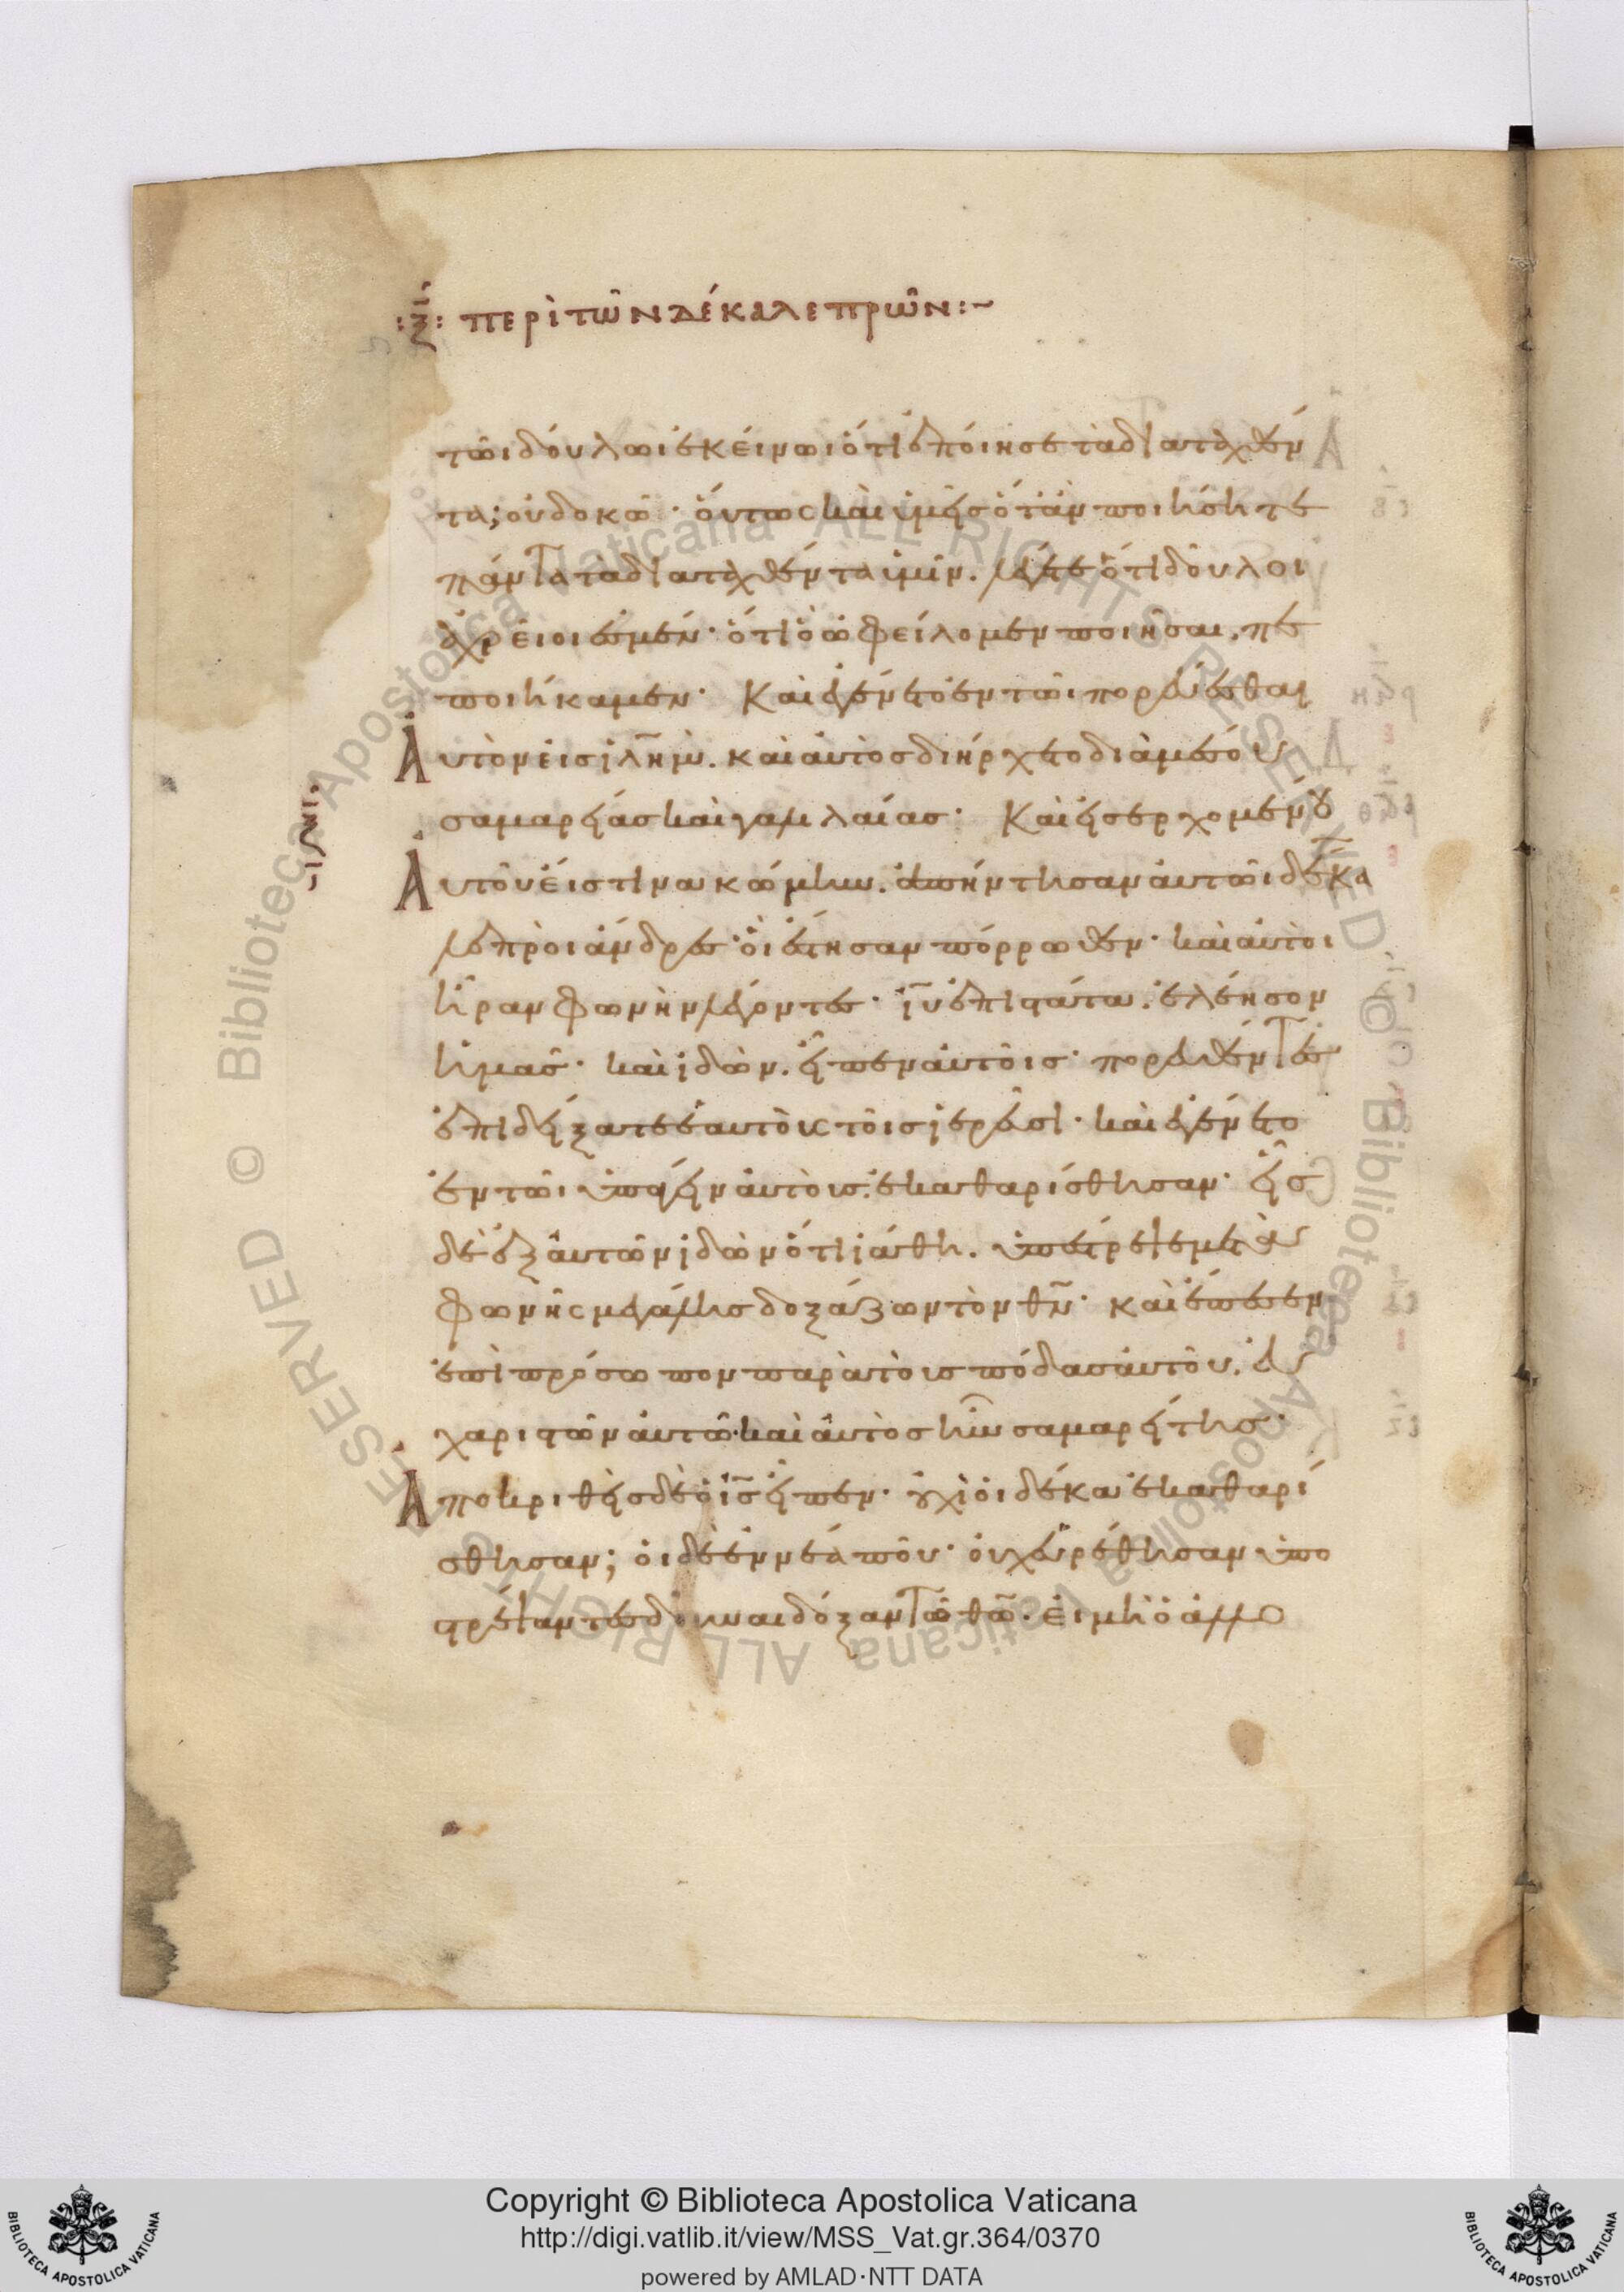 :ξ̅: περὶ τῶν δέκα λεπρῶν:~
τῶι δούλωι ἐκείνωι ὅτι ἐποίησε τὰ διαταχθέν
τα; οὐ δοκῶ· ὅυτως καὶ ὑμεῖς ὅταν ποιήσητε
πάντα τὰ διαταχθέντα ὑμῖν. λέγετε ὅτι δοῦλοι
ἀχρεῖοι ἐσμέν· ὅτι ὃ ὠφείλομεν ποιῆσαι. πε
ποιήκαμεν· Καὶ ἐγένετο ἐν τῶι πορεύεσθαι
Αὐτὸν εἰς ἱλῆμ. καὶ αὐτὸς διήρχετο διὰ μέσου
σαμαρείας καὶ γαλιλαίας· Καὶ εἰσερχομένου
Αὐτοῦ εἴς τινα κώμην. ἀπήντησαν αὐτῶι δέκα
λεπροὶ ἄνδρες· οἳ ἔστησαν πόρρωθεν· καὶ αὐτοὶ
ἦραν φωνὴν λέγοντες· ἰῦ ἐπιστάτα. ἐλέησον
ἡμᾶς· καὶ ἰδὼν. εἶπεν αὐτοῖς· πορευθέντες
ἐπιδείξατε ἑαυτοὺς τοῖς ἱερεῦσι· καὶ ἐγένετο
ἐν τῶι ὑπάγειν αὐτοὺς. ἐκαθαρίσθησαν· εἷς
δὲ ἐξ αὐτῶν ἰδὼν ὅτι ἰάθη. ὑπέστρεψε μετὰ
φωνῆς μεγάλης δοξάζων τὸν θν̅· καὶ ἔπεσεν
ἐπὶ πρόσωπον παρὰ τοὺς πόδας αὐτοῦ. εὐ
χαριστῶν αὐτῶ· καὶ αὐτὸς ἦν σαμαρείτης·
Αποκριθεὶς δὲ ὁ ἰς̅ εἶπεν· οὐχὶ οἱ δέκα ἐκαθαρί
σθησαν; οἱ δὲ ἐννέα ποῦ· οὐχ εὑρέθησαν ὑπο
στρέψαντες δοῦναι δόξαν τῶ θω̅· εἰ μὴ ὁ ἀλλο
Copyright © Biblioteca Apostolica Vaticana
http://digi.vatlib.it/view/MSS_Vat.gr.364/0370
powered by AMLAD·NTT DATA